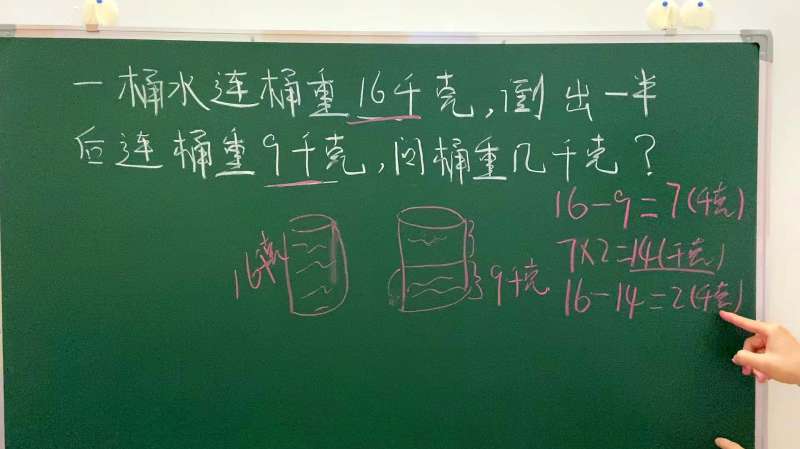 一桶水连桶重16千克,倒出一半
后连桶重9千克,问桶重几千克?
16-9=7(千克)
7×2=14(千克)
16-14=2(千克)
16千克
9千克